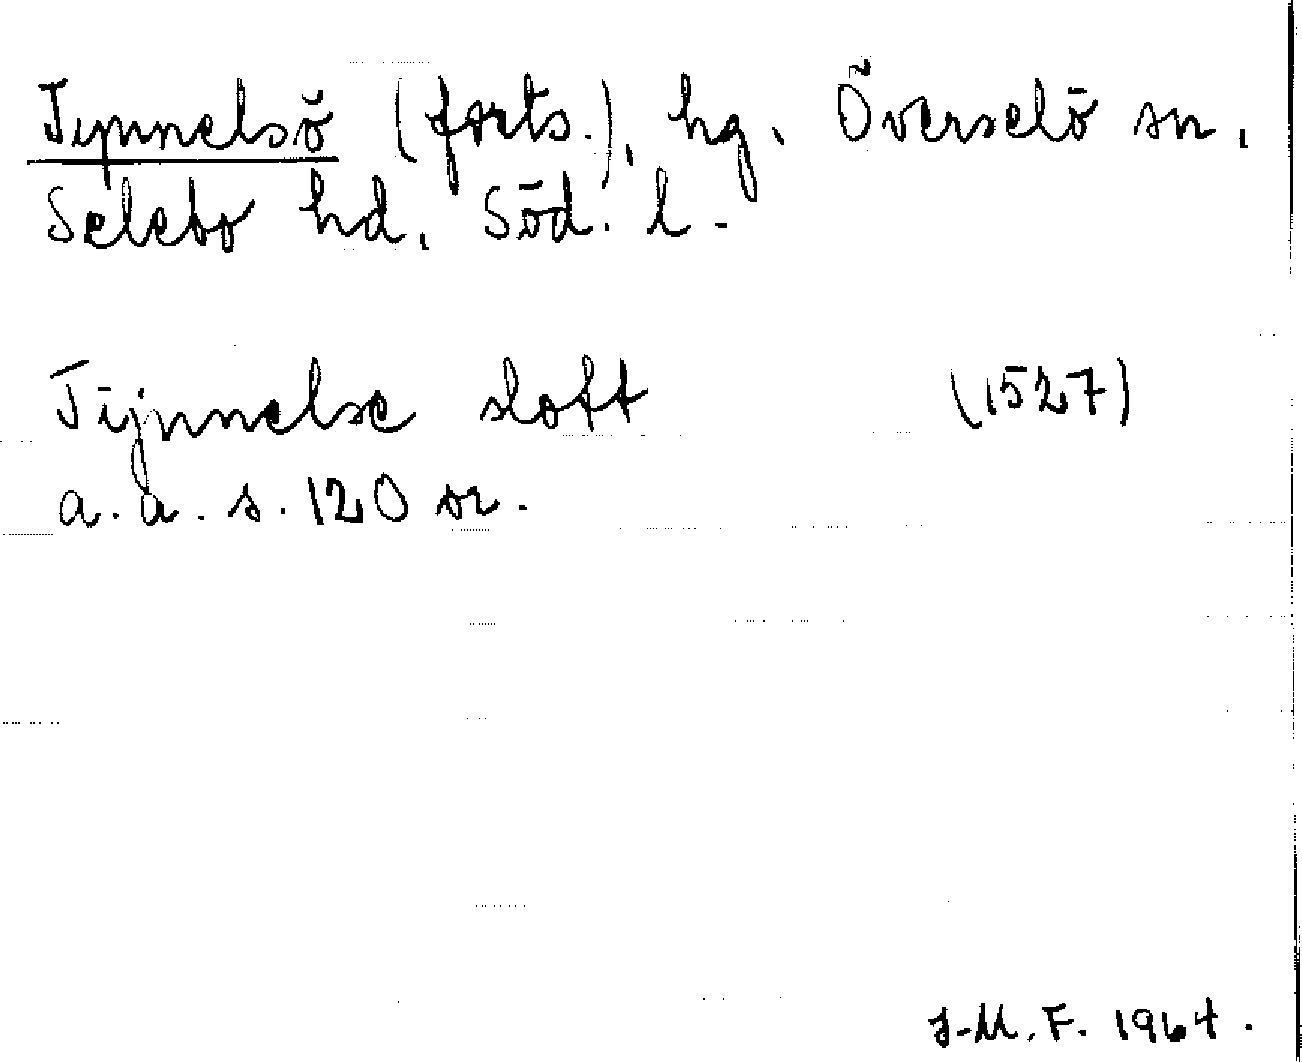 Tynnelsö (forts.), hg. Överselö sn,
Selebo hd, Söd. l.
Tijnnelse slott (1527)
a. a. s. 120 sr.
J-M. F. 1964.